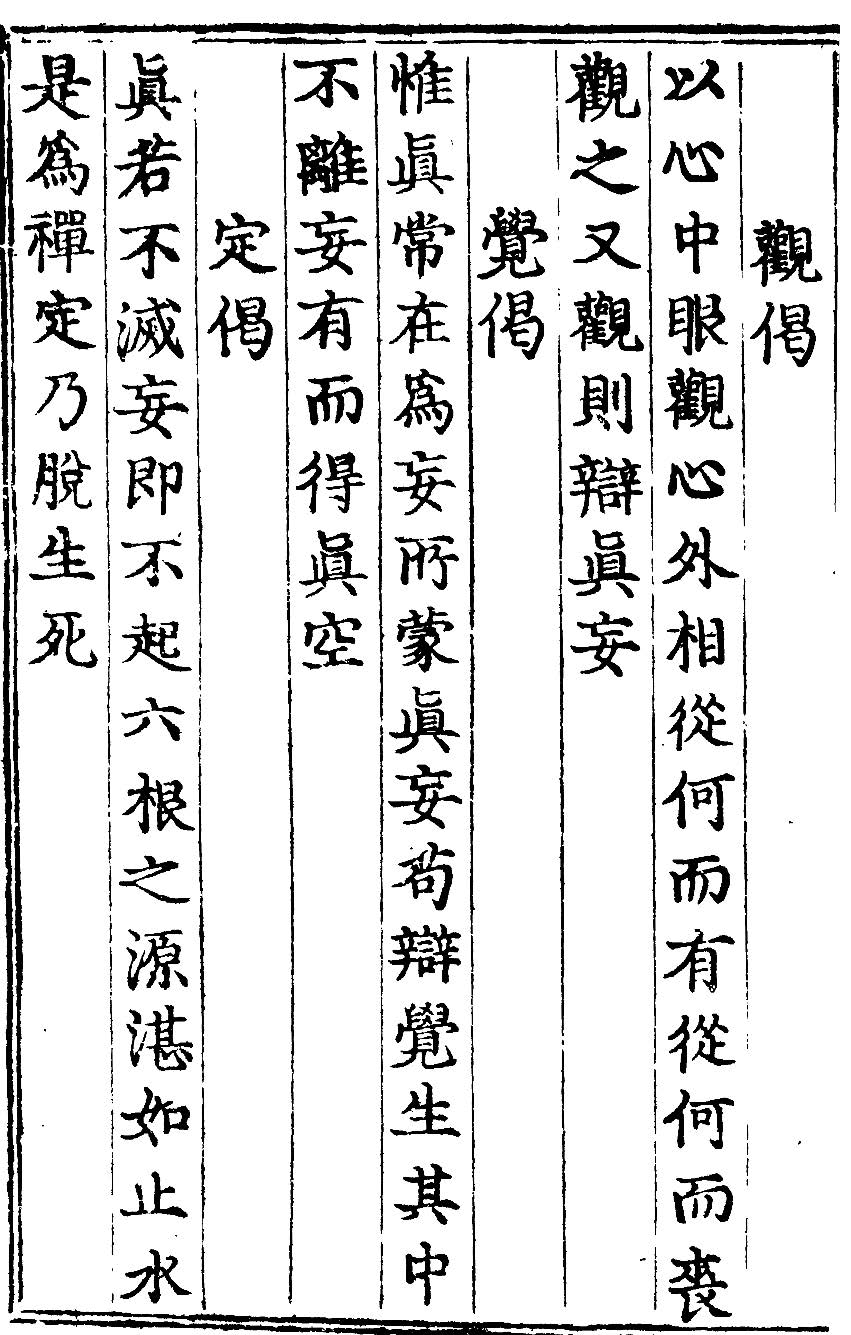 觀偈
以心中眼觀心外相從何而有從何而喪
觀之又觀則辯眞妄
覺偈
惟眞常在爲妄所蒙眞妄苟辯覺生其中
不離妄有而得眞空
定偈
眞若不滅妄即不起六根之源湛如止水
是爲禪定乃脫生死